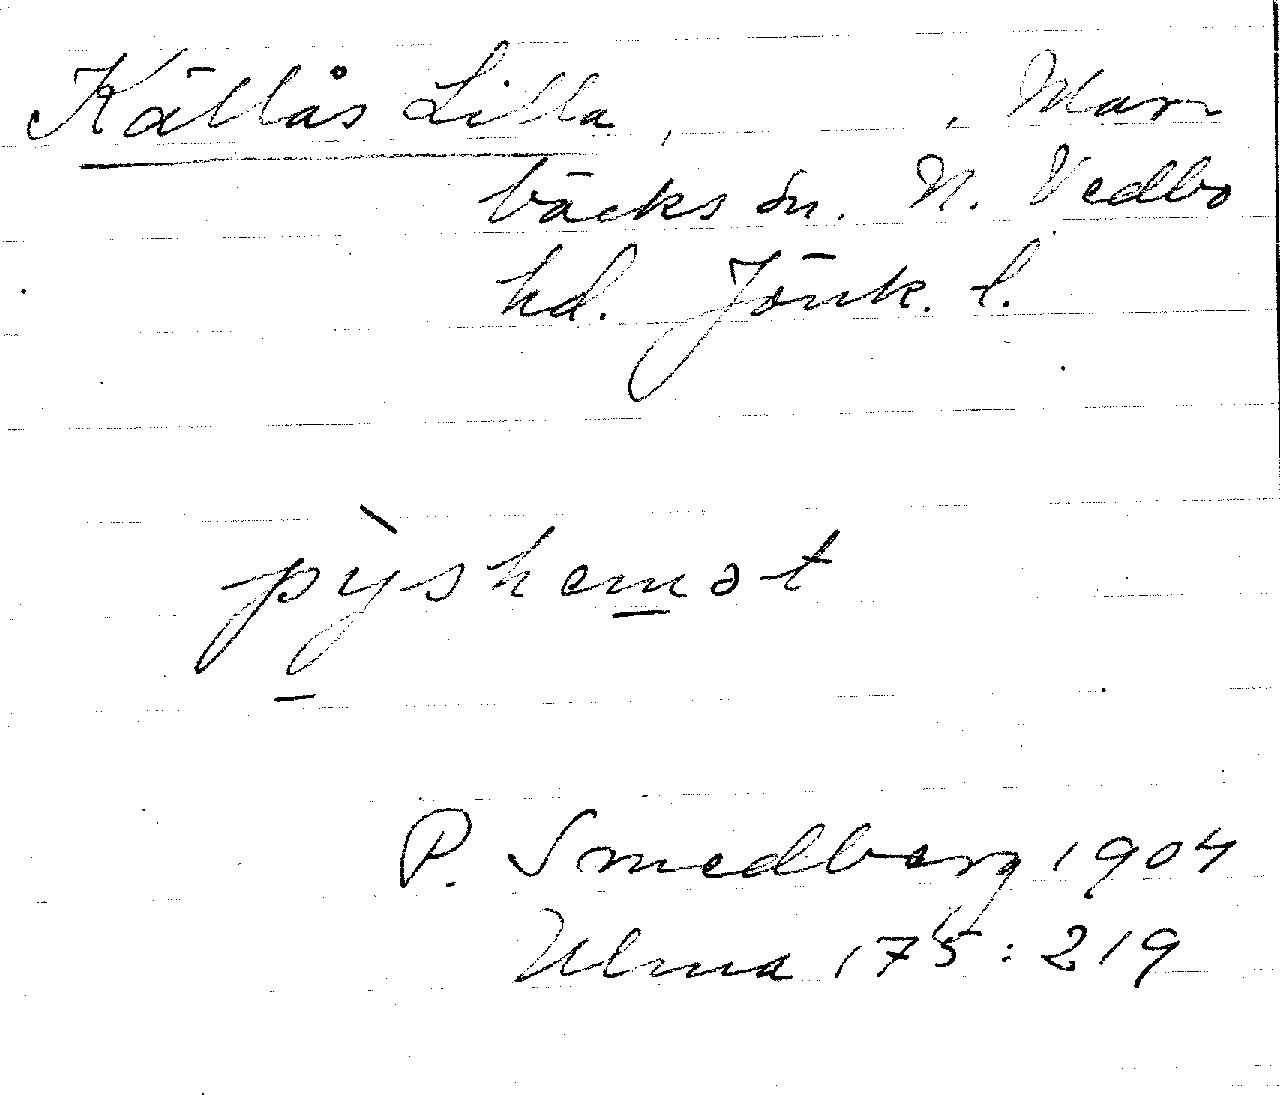 Källås Lilla, , Mar
bäcks sn. N. Vedbo
hd. Jönk. l.
pỳshemət
P. Smedberg 1904
Ulma 175:219